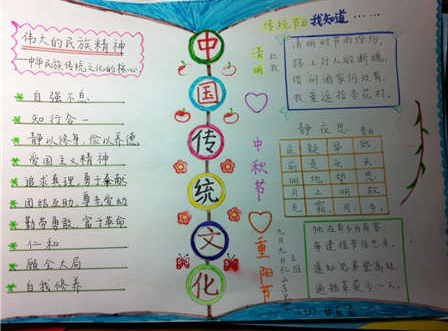 伟大的民族精神
——中华民族传统文化的核心
自强不息
知行合一
静以修身,俭以养德
爱国主义精神
追求真理,勇于奉献
团结互助,尊老爱幼
勤劳勇敢,富于革命
仁和
顾全大局
自我修养
中
国
传
统
文
化
传统节日我知道……
清明
杜牧
清明时节雨纷纷,
路上行人欲断魂。
借问酒家何处有,
牧童遥指杏花村。
中秋节
静夜思
李白
床 疑 举 低
前 是 头 头
明 地 望 思
月 上 明 故
光 霜 月 乡
重阳节
九月九日忆山东兄弟
王维
独在异乡为异客,
每逢佳节倍思亲。
遥知兄弟登高处,
遍插茱萸少一人。